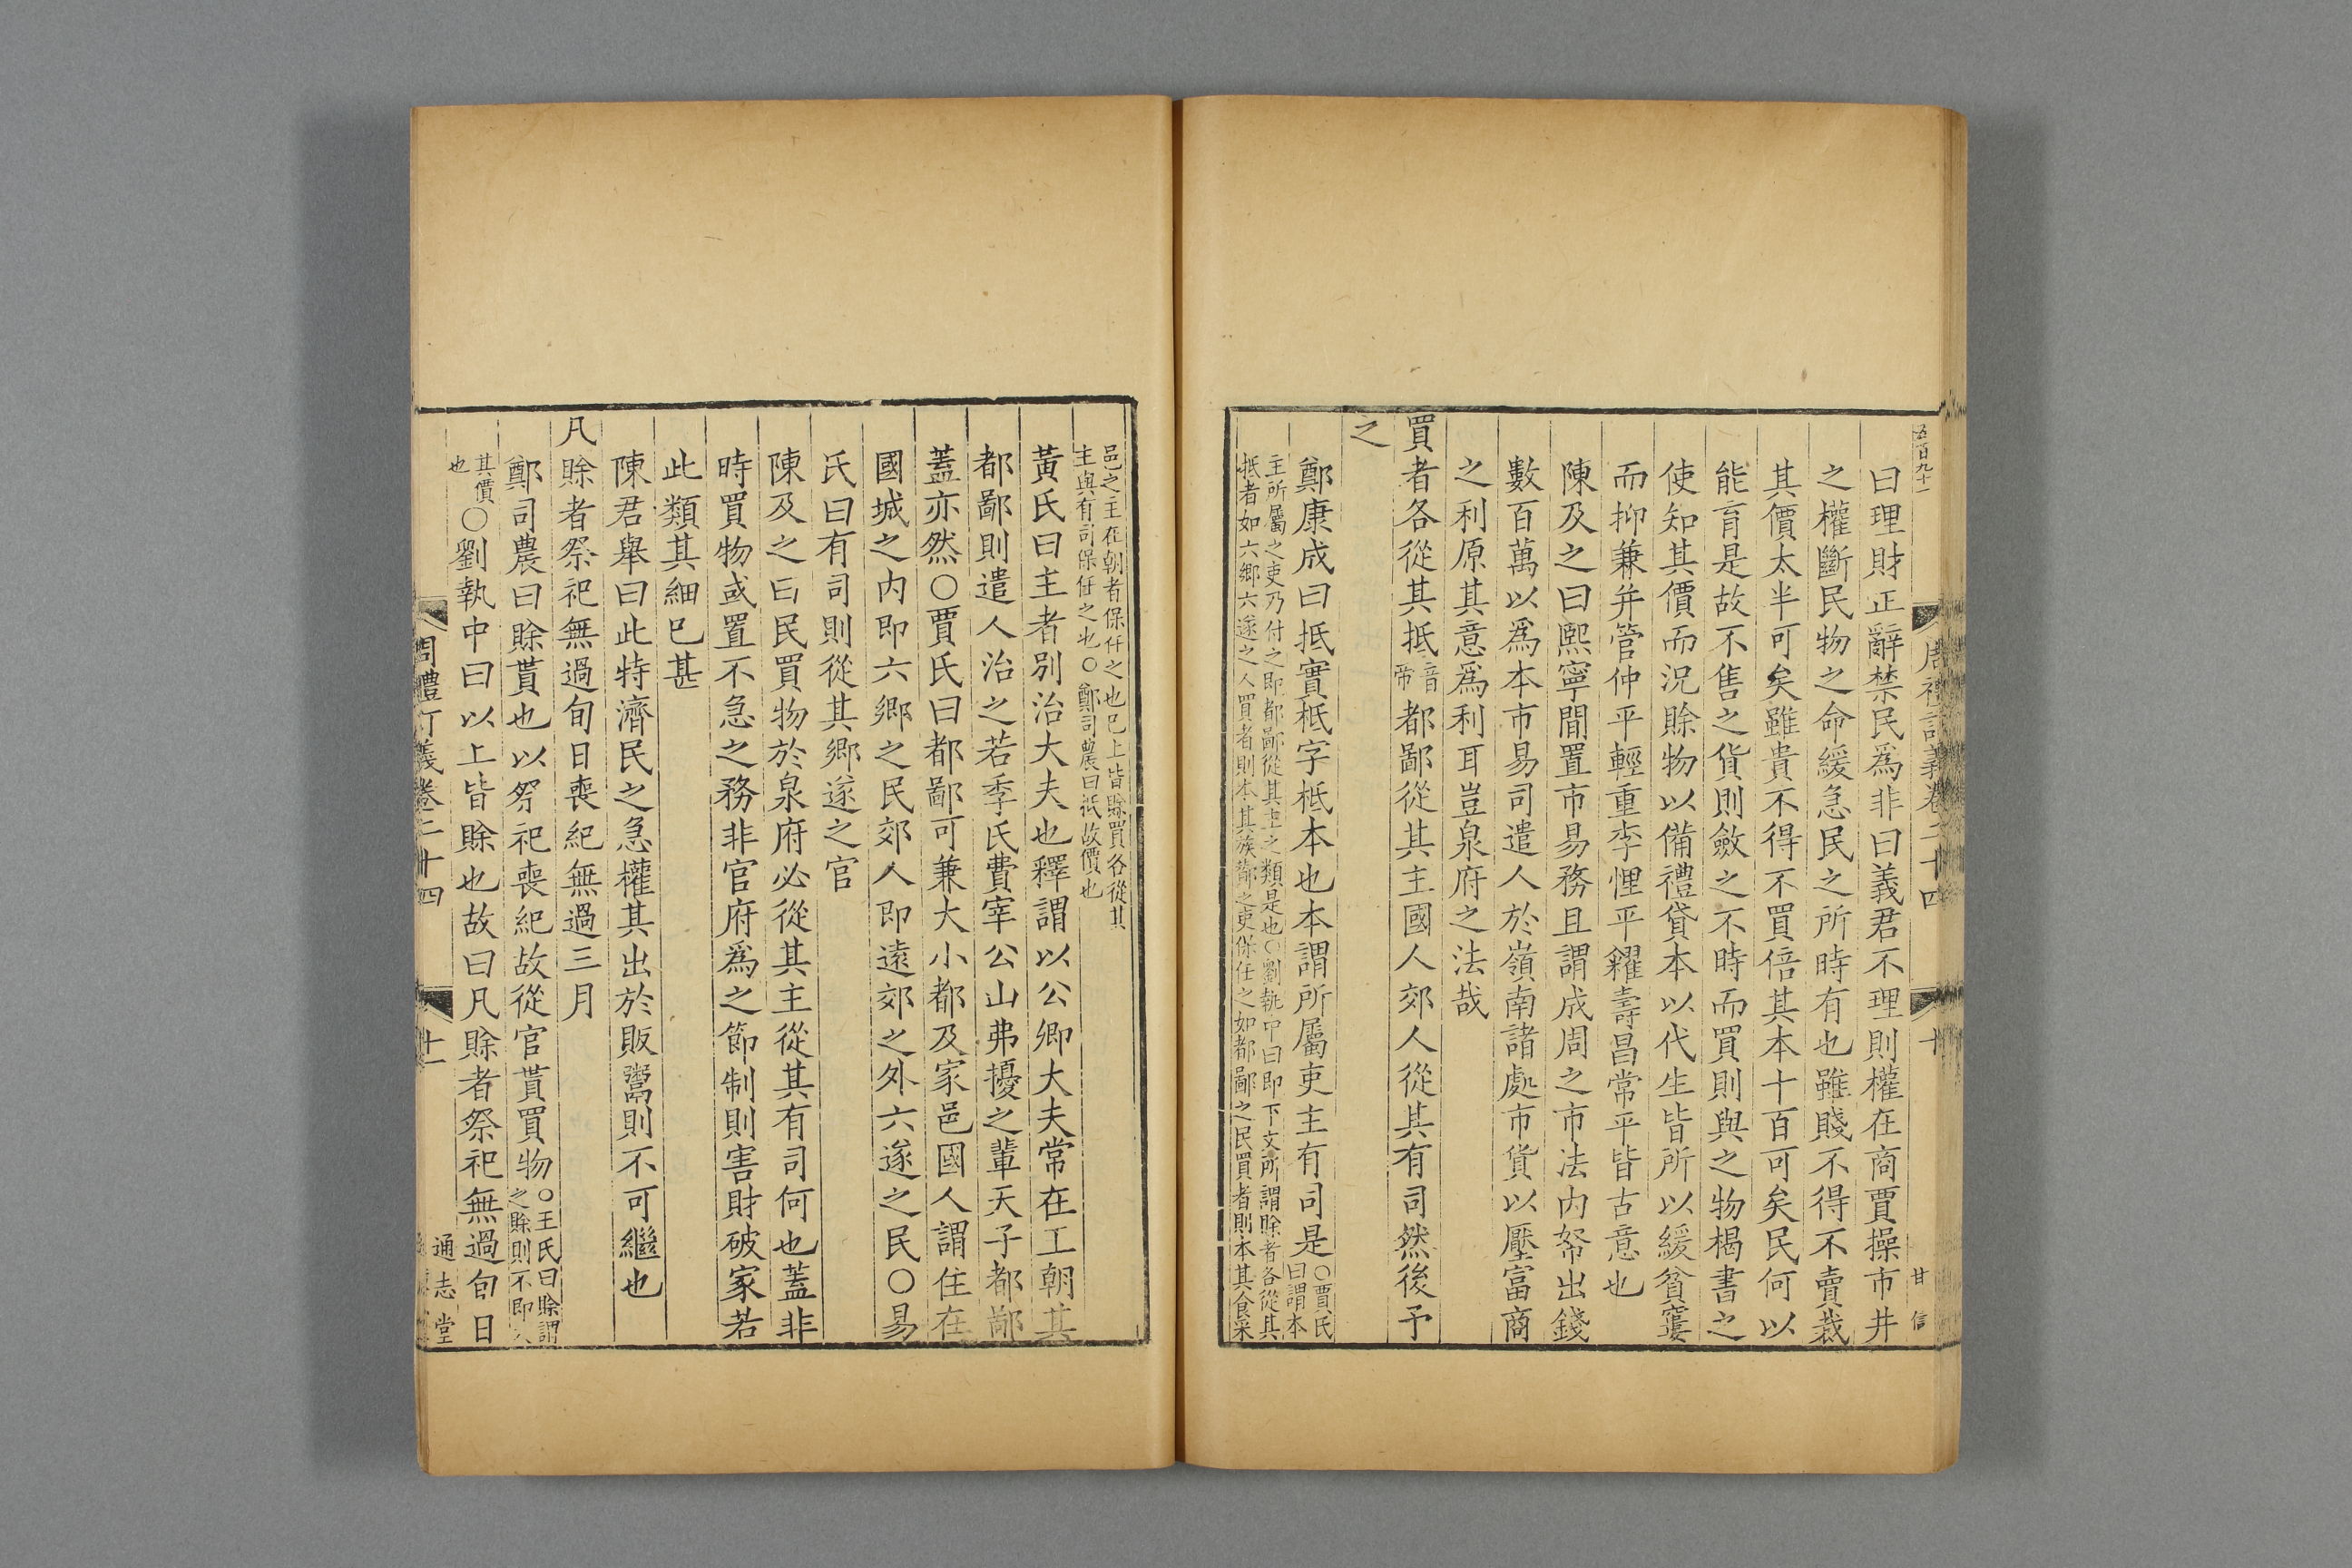 五百九十一
周禮訂義卷二十四 十
甘 信
曰理財正辭禁民爲非曰義君不理則權在商賈操市井
之權斷民物之命緩急民之所時有也雖賤不得不賣裁
其價太半可矣雖貴不得不買倍其本十百可矣民何以
能育是故不售之貨則斂之不時而買則與之物楬書之
使知其價而況賒物以備禮貸本以代生皆所以緩貧窶
而抑兼并管仲平輕重李悝平糴壽昌常平皆古意也
陳及之曰熙寧間置市易務且謂成周之市法內帑出錢
數百萬以爲本市易司遣人於嶺南諸處市貨以壓富商
之利原其意爲利耳豈泉府之法哉
買者各從其抵音帝都鄙從其主國人郊人從其有司然後予
之
鄭康成曰抵實柢字柢本也本謂所屬吏主有司是○賈氏曰謂本
主所屬之吏乃付之即都鄙從其主之類是也○劉執中曰即下文所謂賒者各從其
抵者如六鄉六遂之人買者則本其族鄰之吏保任之如都鄙之民買者則本其食采
邑之主在朝者保任之也已上皆賒買各從其
主與有司保任之也○鄭司農曰抵故價也
黃氏曰主者別治大夫也釋謂以公卿大夫常在工朝其
都鄙則遣人治之若季氏費宰公山弗擾之輩天子都鄙
蓋亦然○賈氏曰都鄙可兼大小都及家邑國人謂住在
國城之內即六鄉之民郊人即遠郊之外六遂之民○易
氏曰有司則從其鄉遂之官
陳及之曰民買物於泉府必從其主從其有司何也蓋非
時買物或置不急之務非官府爲之節制則害財破家若
此類其細已甚
陳君舉曰此特濟民之急權其出於販鬻則不可繼也
凡賒者祭祀無過旬日喪紀無過三月
鄭司農曰賒貰也以祭祀喪紀故從官貰買物○王氏曰賒謂之賒則不即
其價也○劉執中曰以上皆賒也故曰凡賒者祭祀無過旬日
周禮訂義卷二十四 十一
通志堂